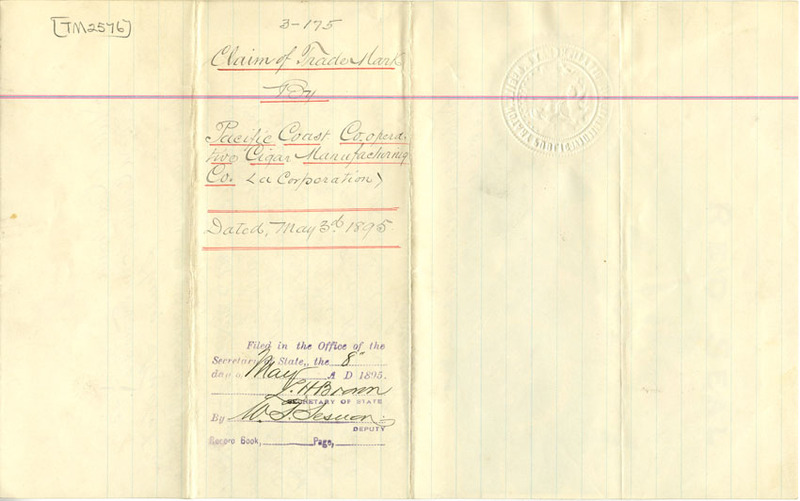 [TM2576]
3-175
Claim of Trade Mark
By
Pacific Coast Co-opera-
tive Cigar Manufacturing
Co. (a Corporation)
Dated, May 3d. 1895
Filed in the Office of the
Secretary State, the 8"
day May A D 1895.
L. H. Brown
SECRETARY OF STATE
By W. T. Sesnon
DEPUTY
Record Book, Page,